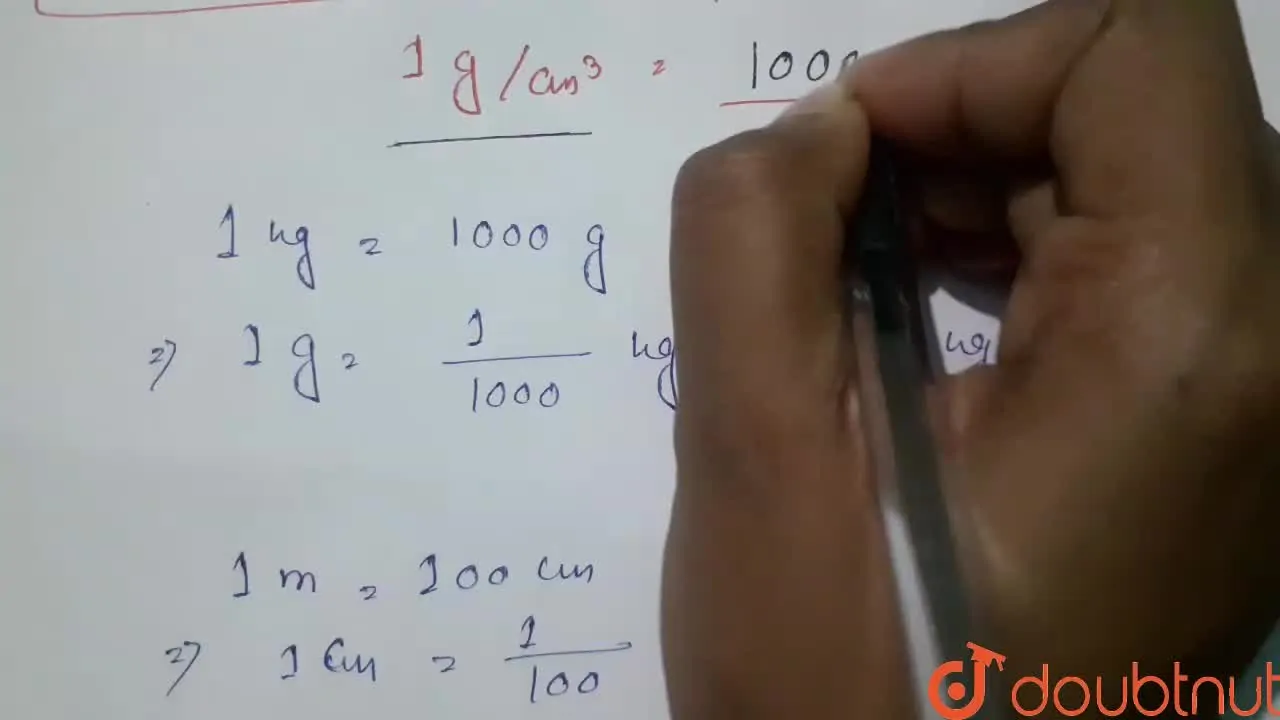 1 g/cm³ = 1000
1 kg = 1000 g
=) 1 g = 1/1000 kg kg
1 m = 100 cm
=) 1 Cm = 1/100
doubtnut